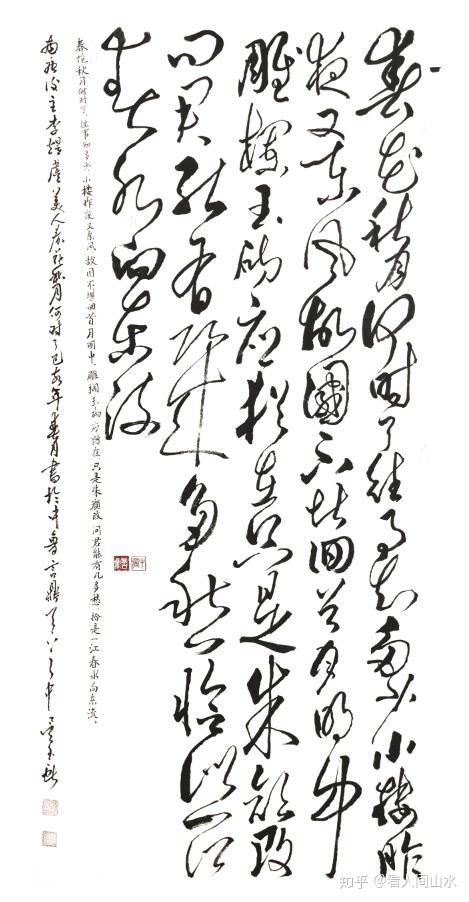 春花秋月何时了往事知多少小楼昨
夜又东风故國不堪回首月明中
雕栏玉砌应犹在只是朱颜改
问君能有几多愁恰似一江
春水向东流
春花秋月何时了，往事知多少，小楼昨夜又东风，故国不堪回首月明中，雕栏玉砌应犹在，只是朱颜改，问君能有几多愁，恰是一江春水向东流。
南唐后主李煜虞美人春花秋月何时了己亥年春月书於中
知乎 @看人间山水